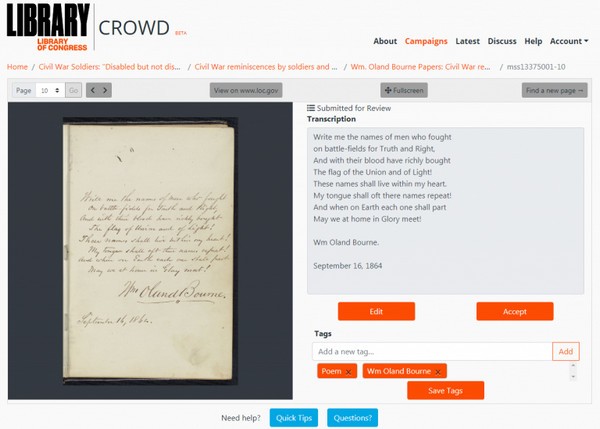 LIBRARY
LIBRARY
OF CONGRESS
CROWD
BETA
About Campaigns Latest Discuss Help Account
Home / Civil War Soldiers: "Disabled but not dis... / Civil War reminiscences by soldiers and ... / Wm. Oland Bourne Papers: Civil War re... / mss13375001-10
Page 10 Go View on www.loc.gov Fullscreen Find a new page →
Write me the names of men who fought
On battle fields for Truth and Right,
And with their blood have richly bought
The flag of Union and of Light!
These names shall live within my heart!
My tongue shall oft their names repeat!
And when on Earth each one shall part
May we at home in Glory meet!
Wm Oland Bourne.
September 16, 1864.
Submitted for Review
Transcription
Write me the names of men who fought
on battle-fields for Truth and Right,
And with their blood have richly bought
The flag of the Union and of Light!
These names shall live within my heart.
My tongue shall oft there names repeat!
And when on Earth each one shall part
May we at home in Glory meet!
Wm Oland Bourne.
September 16, 1864
Edit Accept
Tags
Add a new tag... Add
Poem × Wm Oland Bourne ×
Save Tags
Need help? Quick Tips Questions?